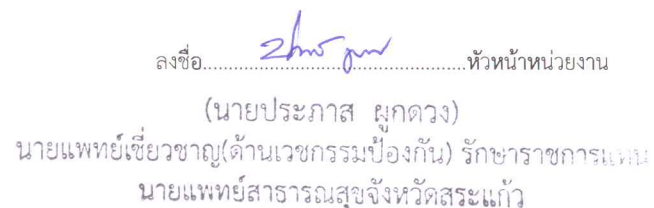 ลงชื่อ....................................................หัวหน้าหน่วยงาน
(นายประภาส ผูกดวง)
นายแพทย์เชี่ยวชาญ(ด้านเวชกรรมป้องกัน) รักษาราชการแทน
นายแพทย์สาธารณสุขจังหวัดสระแก้ว